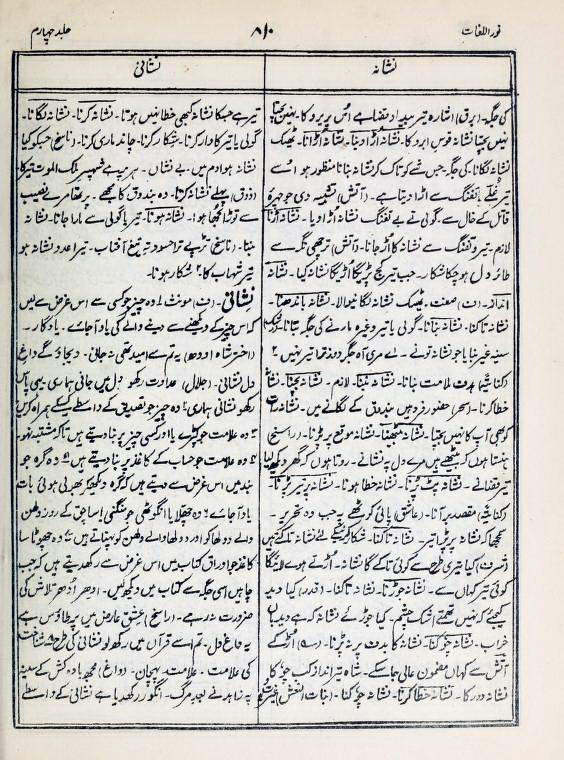 نور اللغات
۸۱۰
جلد چہارم
نشانہ
نشانی
کی جگہ۔ (برق) اشارہ تیر بیداد قضا ہے اُس پر برو کا۔ نہیں بچتا
نہیں بچتا نشانہ قوس ابرو کا۔ نشانہ اُڑا دینا۔ نشانہ اُڑانا۔ ٹھیک
نشانہ لگانا۔ کی جگہ۔ جس شے کو تاک کر نشانہ بنانا منظور ہو اُسے
تیر غلّے یا تفنگ سے اُڑا دیتا ہے۔ (آتش) تشبیہ دی جو چہرۂ
قاتل کے خال سے۔ گولی نے بے تفنگ نشانہ اُڑا دیا۔ نشانہ اُڑنا
لازم۔ تیر و تفنگ سے نشانہ کا اُڑ جانا۔ (آتش) ترچھی نگہ سے
طائر دل ہو چکا شکار۔ جب تیر کج پڑیگا اُڑیگا نشانہ کیا۔ نشانہ
انداز۔ (ف) صفت۔ ٹھیک نشانہ لگانیوالا۔ نشانہ باندھنا۔
نشانہ تاکنا۔ نشانہ بنانا۔ گولی یا تیر وغیرہ مارنے کی جگہ بنانا۔
سینۂ غیر بنایا جو نشانہ تونے۔ اے مری آہ جگر دوز تما تیر نہیں ۲
(کنایۃً) ہدف ملامت بنانا۔ نشانہ بننا۔ لازم۔ نشانہ بچنا۔ نشانہ
خطا کرنا۔ (سحر) حضور فرد ہیں بندوق کے لگانے میں۔ نشانہ
کو بھی آپ کا نہیں بچتا۔ نشانہ بیٹھنا۔ نشانہ موقع پر پڑنا۔ (راسخ)
ہنستا ہوں کہ بیٹھے ہیں مرے دل پہ نشانے۔ روتا ہوں کہ گھر دیکھ لیا
تیر قضا نے۔ نشانہ پٹ پڑنا۔ نشانہ خطا ہونا۔ نشانہ پر تیر پڑنا۔
(کنایۃً) مقصد برآنا۔ (عاشق) پائی کوٹھے پہ جب وہ تحریر۔
سمجھا کہ نشانہ پر پڑا تیر۔ نشانہ تاکنا۔ شکار کرنیکے لئے نشانہ تاکتے ہیں
(شرف) کیا تیری طرح سے کوئی تاکے گا نشانہ۔ اُڑتے ہوئے لاگیگا
کوئی تیر کہاں سے۔ نشانہ جوڑنا۔ نشانہ تاکنا۔ (قدر) کیا دید
کیجے کہ نہیں تھمتے اشک چشم۔ کیا جوڑئے نشانہ کہ ہے دیدبان
خراب۔ نشانہ چوکنا۔ نشانہ کا ہدف پر نہ پڑنا۔ اُڑکے
آتش سے کہاں مضمون عالی جا سکے۔ شاہ تیر انداز کب چوکا
نشانہ دور کا۔ نشانہ خطا کرنا۔ نشانہ چوکنا۔ (بنات النعش)
تیر ہے جسکا نشانہ کبھی خطا نہیں ہوتا۔ نشانہ کرنا۔ نشانہ لگانا۔
گولی یا تیر کا وار کرنا۔ شکار کرنا۔ چاند ماری کرنا۔ (ناسخ) جسکو کیا
نشانہ ہوا دم میں بے نشاں۔ ہر پر ہے شہپر ملک الموت تیر کا
(ذوق) پہلے نشانہ کرنا۔ وہ بندوق کا مجھے۔ پر تھا مرے نصیب
سے توڑا بجھا ہوا۔ نشانہ ہونا۔ تیر یا گولی سے مارا جانا۔ نشانہ
بننا۔ (ناسخ) تڑپے ترا حسود تہِ تیغ آفتاب۔ تیرا عدو نشانہ ہو
تیر شہاب کا۔ ۲ شکار ہونا۔
نشانی۔ (ف) مونث ۱ وہ چیز جو کسی سے اس غرض سے لیں
کہ اُس چیز کے دیکھنے سے دینے والے کی یاد آجائے۔ یادگار۔
(اختر شاہ اودھ) یہ تم سے امید تھی نہ جانی۔ دیجاؤ گے داغ
دل نشانی۔ (جلال) عداوت رکھو دل میں جانی ہماری۔ یہی پاس
رکھو نشانی ہماری۔ ۲ وہ چیز جو تصدیق کے واسطے کسی کے ہمراہ کریں
۳ وہ علامت جو کپڑے یا اور کسی چیز پر بنا دیتے ہیں تاکہ مشتبہ نہو۔
۴ وہ علامت جو حساب کے کاغذ پر بنا دیتے ہیں۔ ۵ وہ گرہ جو
بند میں اس غرض سے دیتے ہیں کہ گرہ دیکھکر بھولی ہوئی بات
یاد آجائے۔ ۶ وہ چھلا یا انگوٹھی جو منگنی یا ساچق کے روز دلھن
والے دولھا کو اور دولھا والے دلھن کو پہناتے ہیں۔ ۷ وہ چھوٹا سا
کاغذ جو اوراق کتاب میں اس غرض سے رکھ دیتے ہیں کہ جب
چاہیں اسی جگہ سے کتاب میں دیکھ لیں۔ ادھر اُدھر تلاش کی
ضرورت نہ رہے۔ (راسخ) عشق عارض میں پر طاؤس ہے
یہ داغ دل۔ تم اسے قرآں میں رکھ لو نشانی کی طرح۔ ۸ شناخت
کی علامت۔ علامت۔ پہچان۔ (داغ) مجھ بادہ کش کے سینہ
پہ زاہد نے بعد مرگ۔ انگور رکھ دیا ہے نشانی کے واسطے